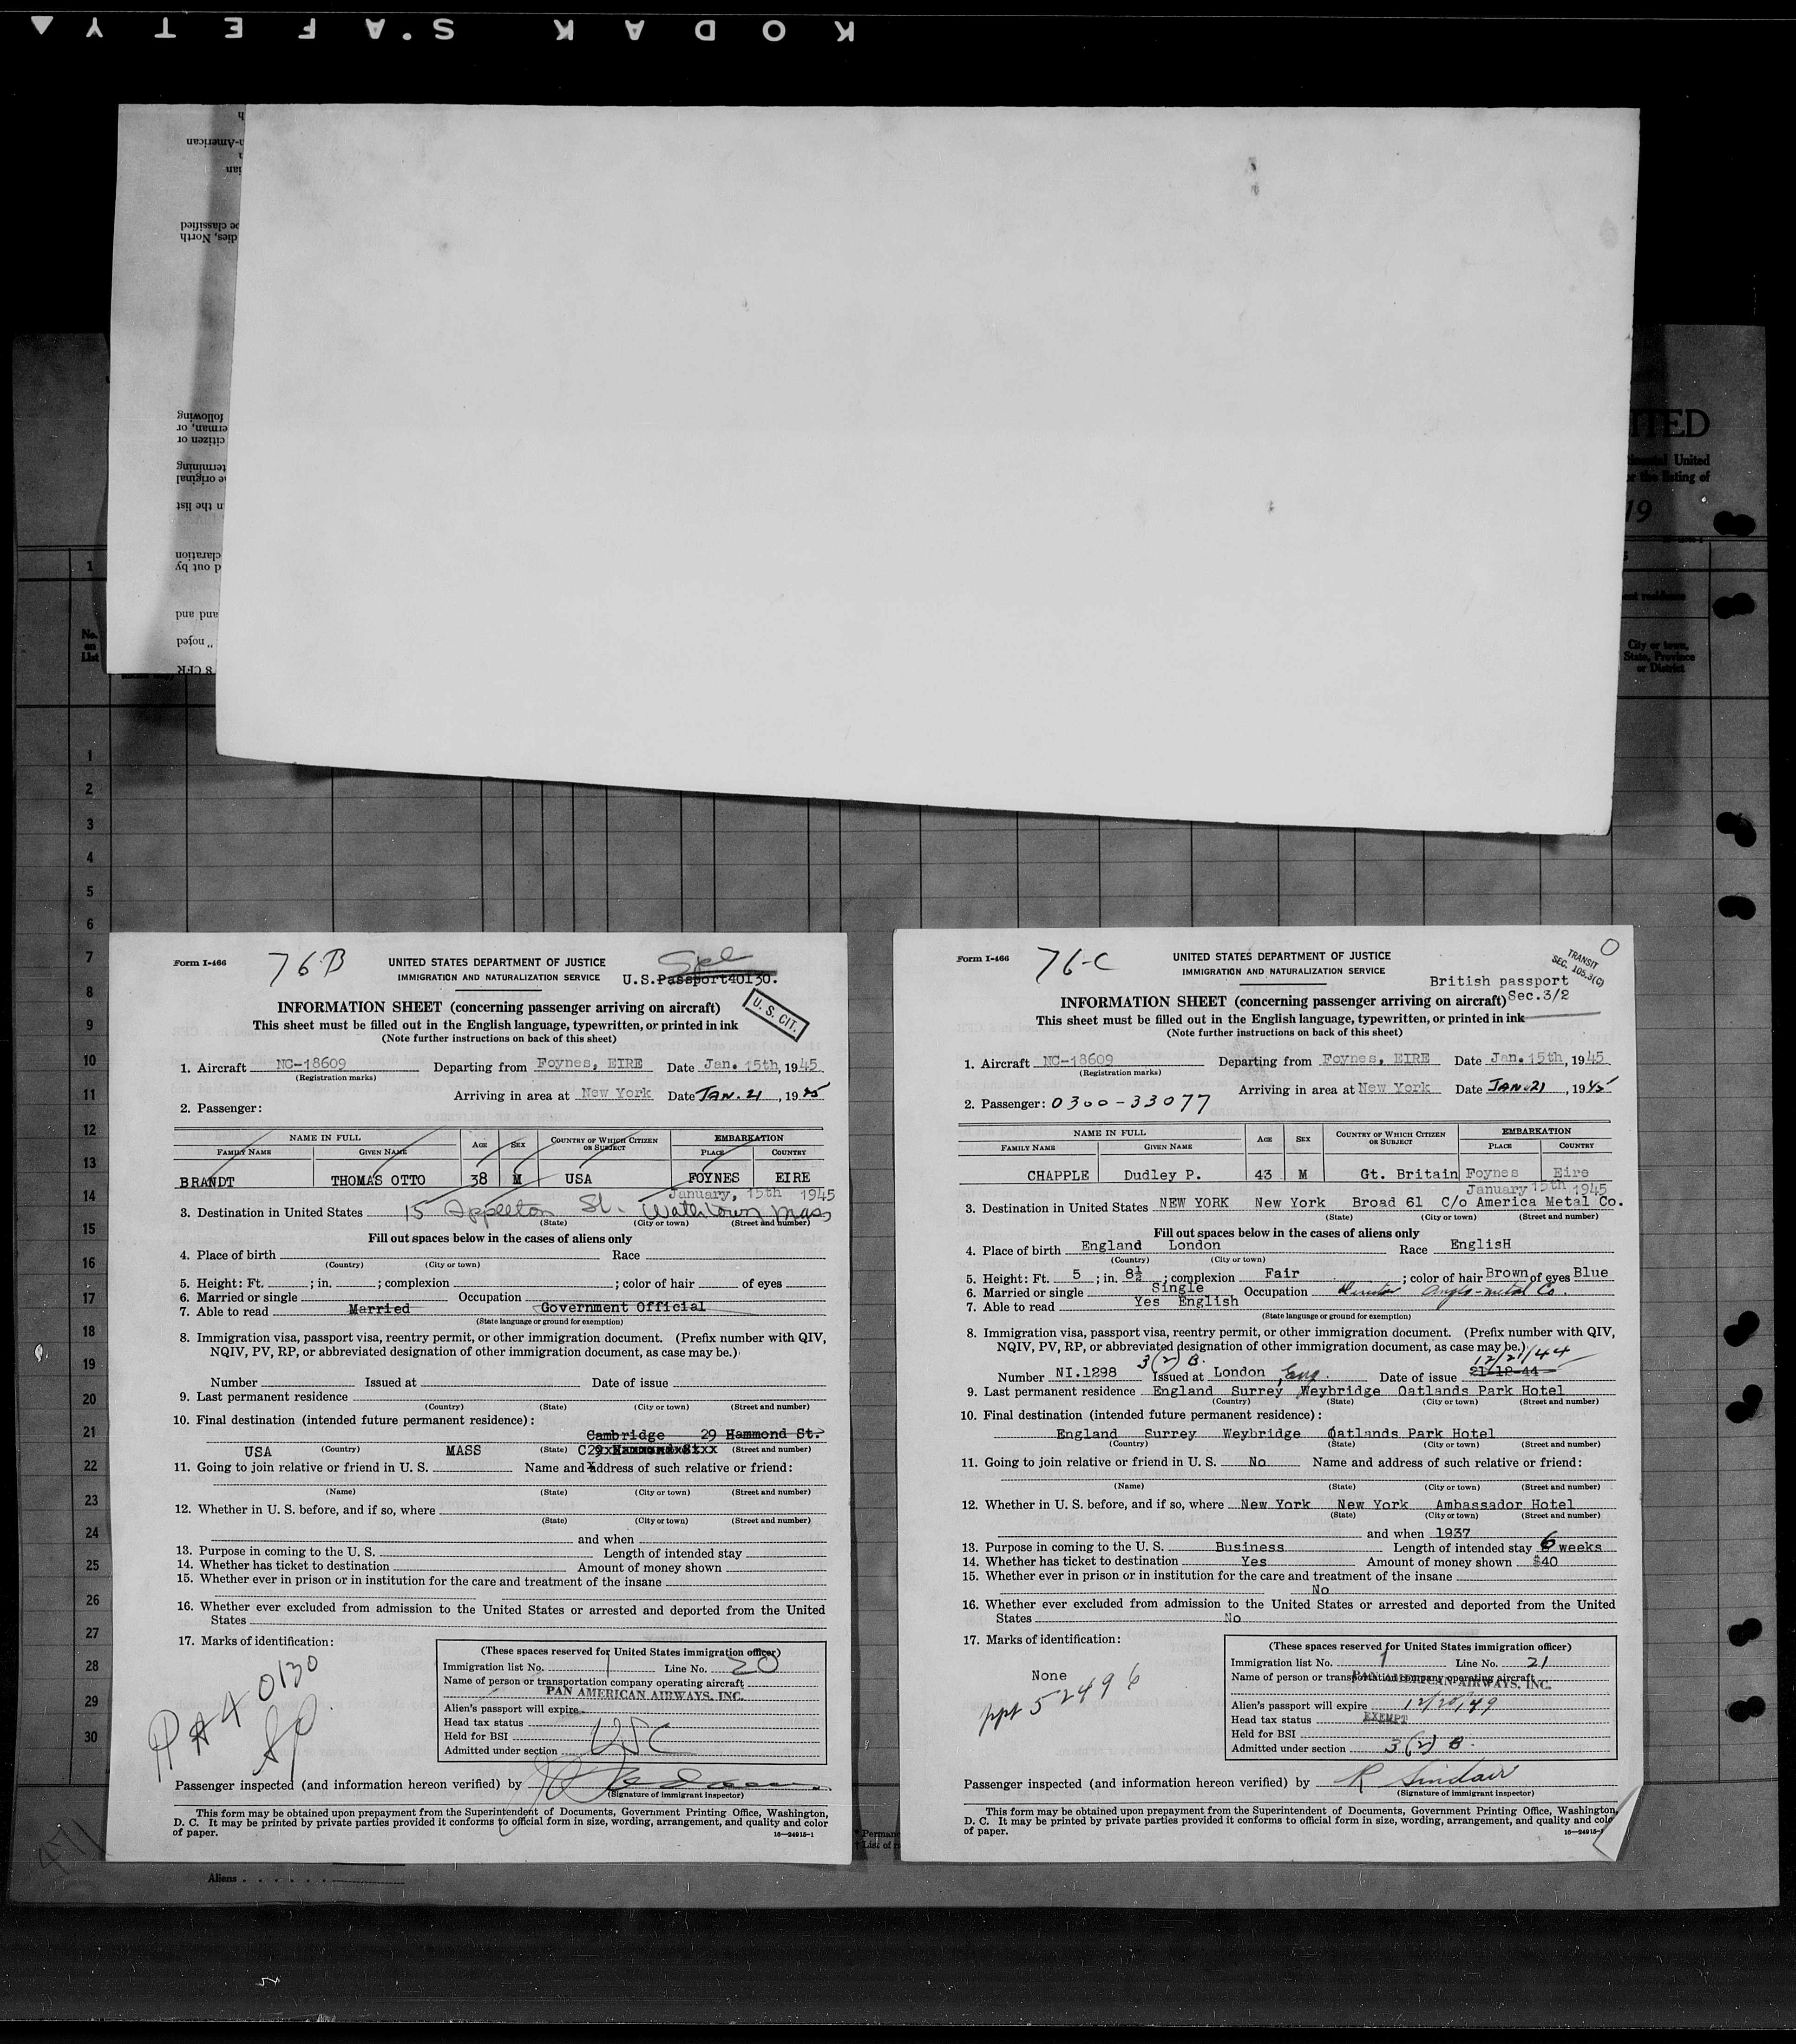 KODAK S.AFETY
h
n-American
n
ian
be classified
dies, North
following
erman, or
citizen or
termining
e original
n the list
claration
d out by
and and
" noted
8 CFR
ITED
tinental United
or the listing of
19
1
No.
on
List
City or town,
State, Province
or District
1
2
3
4
5
6
7
8
9
10
11
12
13
14
15
16
17
18
19
20
21
22
23
24
25
26
27
28
29
30
Form I-466
76B
UNITED STATES DEPARTMENT OF JUSTICE
IMMIGRATION AND NATURALIZATION SERVICE
Spl
U.S.Passport40130.
U. S. CIT.
INFORMATION SHEET (concerning passenger arriving on aircraft)
This sheet must be filled out in the English language, typewritten, or printed in ink
(Note further instructions on back of this sheet)
1. Aircraft NC-18609 Departing from Foynes, EIRE Date Jan. 15th, 1945
(Registration marks)
Arriving in area at New York Date JAN. 21, 1945
2. Passenger:
NAME IN FULL AGE SEX COUNTRY OF WHICH CITIZEN OR SUBJECT EMBARKATION
FAMILY NAME GIVEN NAME PLACE COUNTRY
BRANDT THOMAS OTTO 38 M USA FOYNES EIRE
January, 15th 1945
3. Destination in United States 15 Appleton St. Watertown Mass
(State) (City or town) (Street and number)
Fill out spaces below in the cases of aliens only
4. Place of birth Race
(Country) (City or town)
5. Height: Ft. ; in. ; complexion ; color of hair of eyes
6. Married or single Occupation
7. Able to read Married Government Official
(State language or ground for exemption)
8. Immigration visa, passport visa, reentry permit, or other immigration document. (Prefix number with QIV,
NQIV, PV, RP, or abbreviated designation of other immigration document, as case may be.)
Number Issued at Date of issue
9. Last permanent residence
(Country) (State) (City or town) (Street and number)
10. Final destination (intended future permanent residence):
Cambridge 29 Hammond St.
USA (Country) MASS (State) (Street and number)
11. Going to join relative or friend in U. S. Name and address of such relative or friend:
(Name) (State) (City or town) (Street and number)
12. Whether in U. S. before, and if so, where
(State) (City or town) (Street and number)
and when
13. Purpose in coming to the U. S. Length of intended stay
14. Whether has ticket to destination Amount of money shown
15. Whether ever in prison or in institution for the care and treatment of the insane
16. Whether ever excluded from admission to the United States or arrested and deported from the United
States
17. Marks of identification:
PA# 0130
(These spaces reserved for United States immigration officer)
Immigration list No. 1 Line No. 20
Name of person or transportation company operating aircraft
PAN AMERICAN AIRWAYS, INC.
Alien's passport will expire
Head tax status
Held for BSI
Admitted under section USC
Passenger inspected (and information hereon verified) by
(Signature of immigrant inspector)
This form may be obtained upon prepayment from the Superintendent of Documents, Government Printing Office, Washington,
D. C. It may be printed by private parties provided it conforms to official form in size, wording, arrangement, and quality and color
of paper. 16—24915-1
Form I-466
76-C
UNITED STATES DEPARTMENT OF JUSTICE
IMMIGRATION AND NATURALIZATION SERVICE
TRANSIT
SEC. 105.3(C)
British passport
Sec.3/2
INFORMATION SHEET (concerning passenger arriving on aircraft)
This sheet must be filled out in the English language, typewritten, or printed in ink
(Note further instructions on back of this sheet)
1. Aircraft NC-18609 Departing from Foynes, EIRE Date Jan. 15th, 1945
(Registration marks)
Arriving in area at New York Date JAN. 21, 1945
2. Passenger: 0300-33077
NAME IN FULL AGE SEX COUNTRY OF WHICH CITIZEN OR SUBJECT EMBARKATION
FAMILY NAME GIVEN NAME PLACE COUNTRY
CHAPPLE Dudley P. 43 M Gt. Britain Foynes Eire
January 15th 1945
3. Destination in United States NEW YORK New York Broad 61 C/o America Metal Co.
(State) (City or town) (Street and number)
Fill out spaces below in the cases of aliens only
4. Place of birth England London Race EnglisH
(Country) (City or town)
5. Height: Ft. 5 ; in. 8½ ; complexion Fair ; color of hair Brown of eyes Blue
6. Married or single Single Occupation Director Anglo-Metal Co.
7. Able to read Yes English
(State language or ground for exemption)
8. Immigration visa, passport visa, reentry permit, or other immigration document. (Prefix number with QIV,
NQIV, PV, RP, or abbreviated designation of other immigration document, as case may be.)
3(2) B. 12/21/44
Number NI.1298 Issued at London Eng. Date of issue 21-12-44
9. Last permanent residence England Surrey Weybridge Oatlands Park Hotel
(Country) (State) (City or town) (Street and number)
10. Final destination (intended future permanent residence):
England Surrey Weybridge Oatlands Park Hotel
(Country) (State) (City or town) (Street and number)
11. Going to join relative or friend in U. S. No Name and address of such relative or friend:
(Name) (State) (City or town) (Street and number)
12. Whether in U. S. before, and if so, where New York New York Ambassador Hotel
(State) (City or town) (Street and number)
and when 1937
13. Purpose in coming to the U. S. Business Length of intended stay 6 weeks
14. Whether has ticket to destination Yes Amount of money shown $40
15. Whether ever in prison or in institution for the care and treatment of the insane
No
16. Whether ever excluded from admission to the United States or arrested and deported from the United
States No
17. Marks of identification:
None
ppt 52496
(These spaces reserved for United States immigration officer)
Immigration list No. 1 Line No. 21
Name of person or transportation company operating aircraft
PAN AMERICAN AIRWAYS, INC.
Alien's passport will expire 12/20/49
Head tax status EXEMPT
Held for BSI
Admitted under section 3(2) B.
Passenger inspected (and information hereon verified) by R Sinclair
(Signature of immigrant inspector)
This form may be obtained upon prepayment from the Superintendent of Documents, Government Printing Office, Washington,
D. C. It may be printed by private parties provided it conforms to official form in size, wording, arrangement, and quality and colo
of paper. 16—24915-1
* Permane
† List of r
471
Aliens